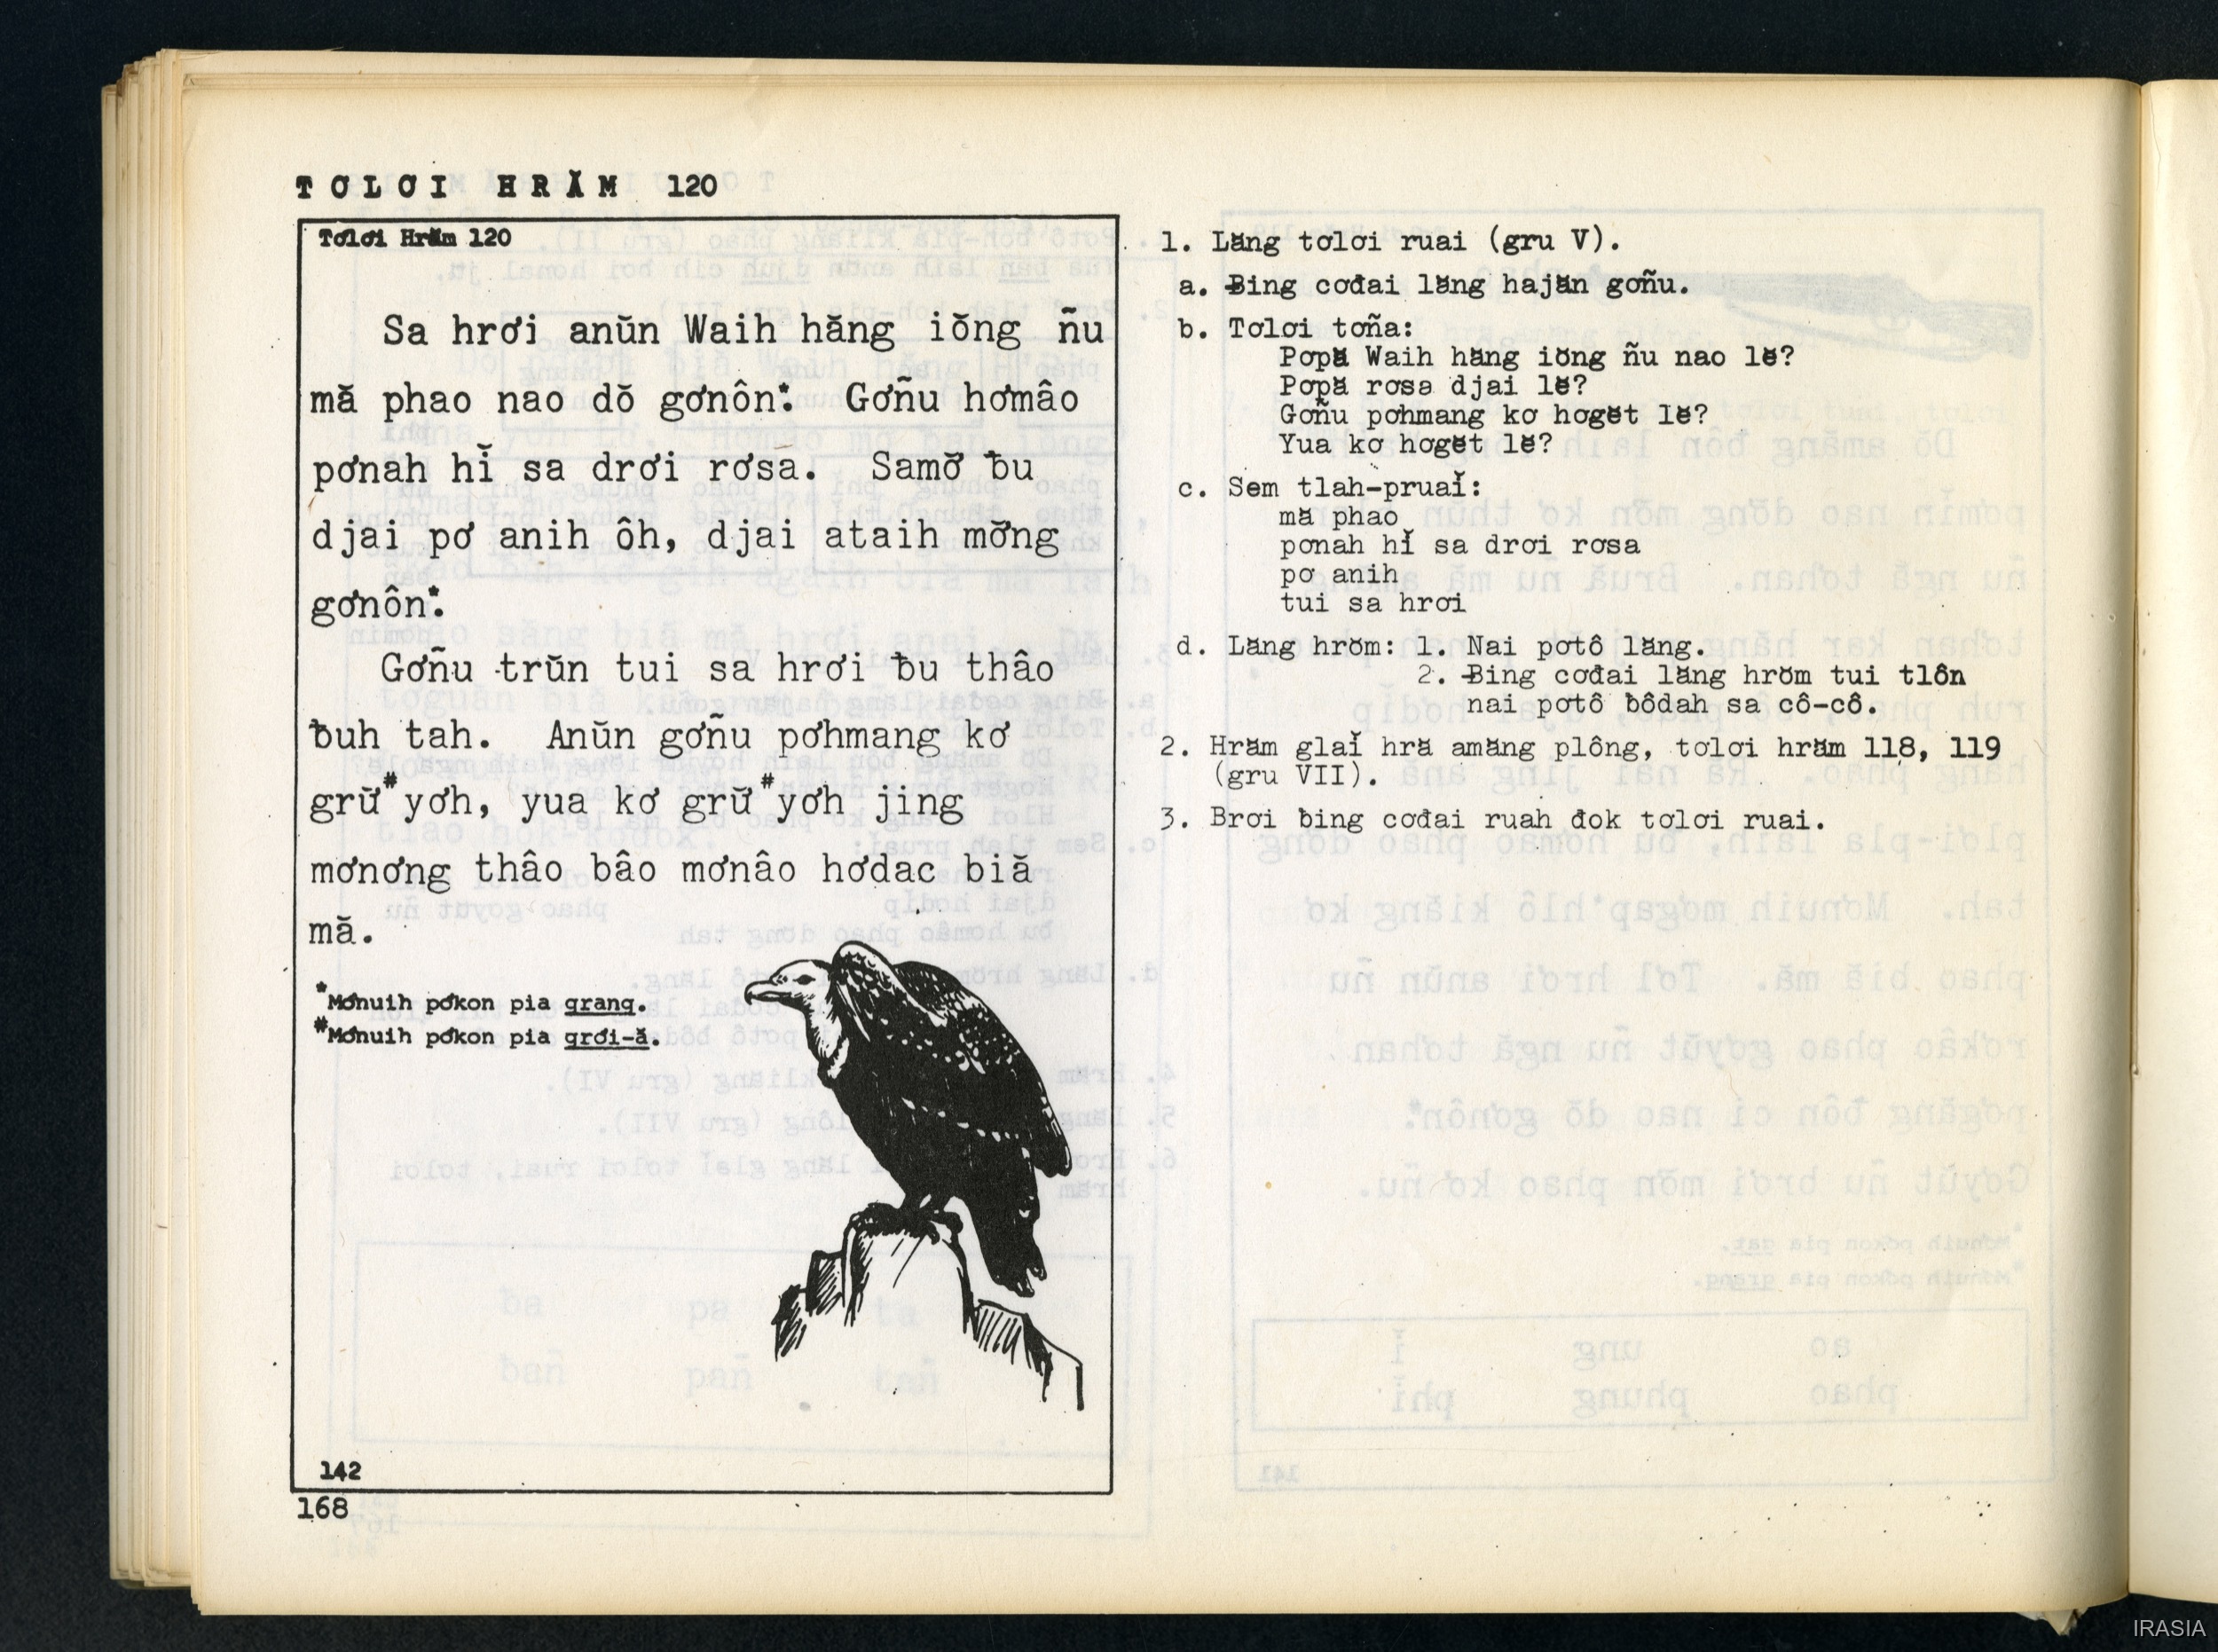 TƠLƠI HRĂM 120
Tơlơi Hrăm 120
Sa hrơi anŭn Waih hăng iŏng ñu
mă phao nao dŏ gơnôn*. Gơñu hơmâo
pơnah hĭ sa drơi rơsa. Samơ̆ ƀu
djai pơ anih ôh, djai ataih mơ̆ng
gơnôn*.
Gơñu trŭn tui sa hrơi ƀu thâo
ƀuh tah. Anŭn gơñu pơhmang kơ
grư̆#yơh, yua kơ grư̆#yơh jing
mơnơng thâo bâo mơnâo hơdac biă
mă.
*Mơnuih pơkon pia grang.
#Mơnuih pơkon pia grơi-ă.
142
168
1. Lăng tơlơi ruai (gru V).
a. Ƀing cơđai lăng hajăn gơñu.
b. Tơlơi tơña:
Pơpă Waih hăng iŏng ñu nao lĕ?
Pơpă rơsa djai lĕ?
Gơñu pơhmang kơ hơgĕt lĕ?
Yua kơ hơgĕt lĕ?
c. Sem tlah-pruaĭ:
mă phao
pơnah hĭ sa drơi rơsa
pơ anih
tui sa hrơi
d. Lăng hrŏm: 1. Nai pơtô lăng.
2. Ƀing cơđai lăng hrŏm tui tlôn
nai pơtô ƀôdah sa cô-cô.
2. Hrăm glaĭ hră amăng plông, tơlơi hrăm 118, 119
(gru VII).
3. Brơi ƀing cơđai ruah đok tơlơi ruai.
IRASIA